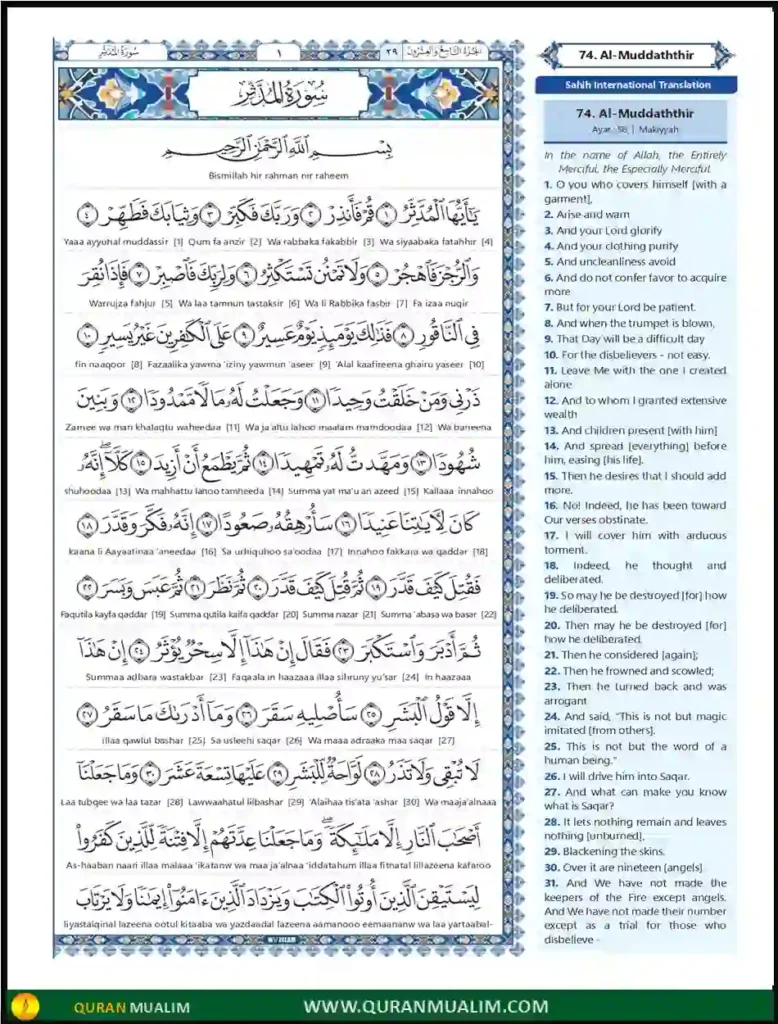 سُورَةُ المُدَّثِّر
١
٢٩
الجُزءُ التَّاسِعُ وَالعِشرُونَ
سُورَةُ المُدَّثِّر
بِسْمِ اللَّهِ الرَّحْمَٰنِ الرَّحِيمِ
Bismillah hir rahman nir raheem
يَٰٓأَيُّهَا ٱلْمُدَّثِّرُ ١ قُمْ فَأَنذِرْ ٢ وَرَبَّكَ فَكَبِّرْ ٣ وَثِيَابَكَ فَطَهِّرْ ٤
Yaaa ayyuhal muddassir [1] Qum fa anzir [2] Wa rabbaka fakabbir [3] Wa siyaabaka fatahhir [4]
وَٱلرُّجْزَ فَٱهْجُرْ ٥ وَلَا تَمْنُن تَسْتَكْثِرُ ٦ وَلِرَبِّكَ فَٱصْبِرْ ٧ فَإِذَا نُقِرَ
Warrujza fahjur [5] Wa laa tamnun tastaksir [6] Wa li Rabbika fasbir [7] Fa izaa nuqir
فِى ٱلنَّاقُورِ ٨ فَذَٰلِكَ يَوْمَئِذٍ يَوْمٌ عَسِيرٌ ٩ عَلَى ٱلْكَٰفِرِينَ غَيْرُ يَسِيرٍ ١٠
fin naaqoor [8] Fazaalika yawma 'iziny yawmun 'aseer [9] 'Alal kaafireena ghairu yaseer [10]
ذَرْنِى وَمَنْ خَلَقْتُ وَحِيدًا ١١ وَجَعَلْتُ لَهُۥ مَالًا مَّمْدُودًا ١٢ وَبَنِينَ
Zarnee wa man khalaqtu waheedaa [11] Wa ja'altu lahoo maalam mamdoodaa [12] Wa baneena
شُهُودًا ١٣ وَمَهَّدتُّ لَهُۥ تَمْهِيدًا ١٤ ثُمَّ يَطْمَعُ أَنْ أَزِيدَ ١٥ كَلَّآ إِنَّهُۥ
shuhoodaa [13] Wa mahhattu lahoo tamheeda [14] Summa yat ma'u an azeed [15] Kallaaa innahoo
كَانَ لِءَايَٰتِنَا عَنِيدًا ١٦ سَأُرْهِقُهُۥ صَعُودًا ١٧ إِنَّهُۥ فَكَّرَ وَقَدَّرَ ١٨
kaana li Aayaatinaa 'aneedaa [16] Sa urhiquhoo sa'oodaa [17] Innahoo fakkara wa qaddar [18]
فَقُتِلَ كَيْفَ قَدَّرَ ١٩ ثُمَّ قُتِلَ كَيْفَ قَدَّرَ ٢٠ ثُمَّ نَظَرَ ٢١ ثُمَّ عَبَسَ وَبَسَرَ ٢٢
Faqutila kayfa qaddar [19] Summa qutila kaifa qaddar [20] Summa nazar [21] Summa 'abasa wa basar [22]
ثُمَّ أَدْبَرَ وَٱسْتَكْبَرَ ٢٣ فَقَالَ إِنْ هَٰذَآ إِلَّا سِحْرٌ يُؤْثَرُ ٢٤ إِنْ هَٰذَآ
Summaa adbara wastakbar [23] Faqaala in haazaaa illaa sihruny yu'sar [24] In haazaaa
إِلَّا قَوْلُ ٱلْبَشَرِ ٢٥ سَأُصْلِيهِ سَقَرَ ٢٦ وَمَآ أَدْرَىٰكَ مَا سَقَرُ ٢٧
illaa qawlul bashar [25] Sa usleehi saqar [26] Wa maaa adraaka maa saqar [27]
لَا تُبْقِى وَلَا تَذَرُ ٢٨ لَوَّاحَةٌ لِّلْبَشَرِ ٢٩ عَلَيْهَا تِسْعَةَ عَشَرَ ٣٠ وَمَا جَعَلْنَآ
Laa tubqee wa laa tazar [28] Lawwaahatul lilbashar [29] 'Alaihaa tis'ata 'ashar [30] Wa maaja'alnaaa
أَصْحَٰبَ ٱلنَّارِ إِلَّا مَلَٰٓئِكَةً وَمَا جَعَلْنَا عِدَّتَهُمْ إِلَّا فِتْنَةً لِّلَّذِينَ كَفَرُوا۟
As-haaban naari illaa malaaa 'ikatanw wa maa ja'alnaa 'iddatahum illaa fitnatal lillazeena kafaroo
لِيَسْتَيْقِنَ ٱلَّذِينَ أُوتُوا۟ ٱلْكِتَٰبَ وَيَزْدَادَ ٱلَّذِينَ ءَامَنُوٓا۟ إِيمَٰنًا وَلَا يَرْتَابَ
liyastaiqinal lazeena ootul kitaaba wa yazdaadal lazeena aamanooo eemaananw wa laa yartaabal-
74. Al-Muddaththir
Sahih International Translation
74. Al-Muddaththir
Ayat : 56 | Makiyyah
In the name of Allah, the Entirely
Merciful, the Especially Merciful.
1. O you who covers himself [with a
garment],
2. Arise and warn
3. And your Lord glorify
4. And your clothing purify
5. And uncleanliness avoid
6. And do not confer favor to acquire
more
7. But for your Lord be patient.
8. And when the trumpet is blown,
9. That Day will be a difficult day
10. For the disbelievers - not easy.
11. Leave Me with the one I created
alone
12. And to whom I granted extensive
wealth
13. And children present [with him]
14. And spread [everything] before
him, easing [his life].
15. Then he desires that I should add
more.
16. No! Indeed, he has been toward
Our verses obstinate.
17. I will cover him with arduous
torment.
18. Indeed, he thought and
deliberated.
19. So may he be destroyed [for] how
he deliberated.
20. Then may he be destroyed [for]
how he deliberated.
21. Then he considered [again];
22. Then he frowned and scowled;
23. Then he turned back and was
arrogant
24. And said, "This is not but magic
imitated [from others].
25. This is not but the word of a
human being."
26. I will drive him into Saqar.
27. And what can make you know
what is Saqar?
28. It lets nothing remain and leaves
nothing [unburned],
29. Blackening the skins.
30. Over it are nineteen [angels].
31. And We have not made the
keepers of the Fire except angels.
And We have not made their number
except as a trial for those who
disbelieve -
QURAN MUALIM
WWW.QURANMUALIM.COM